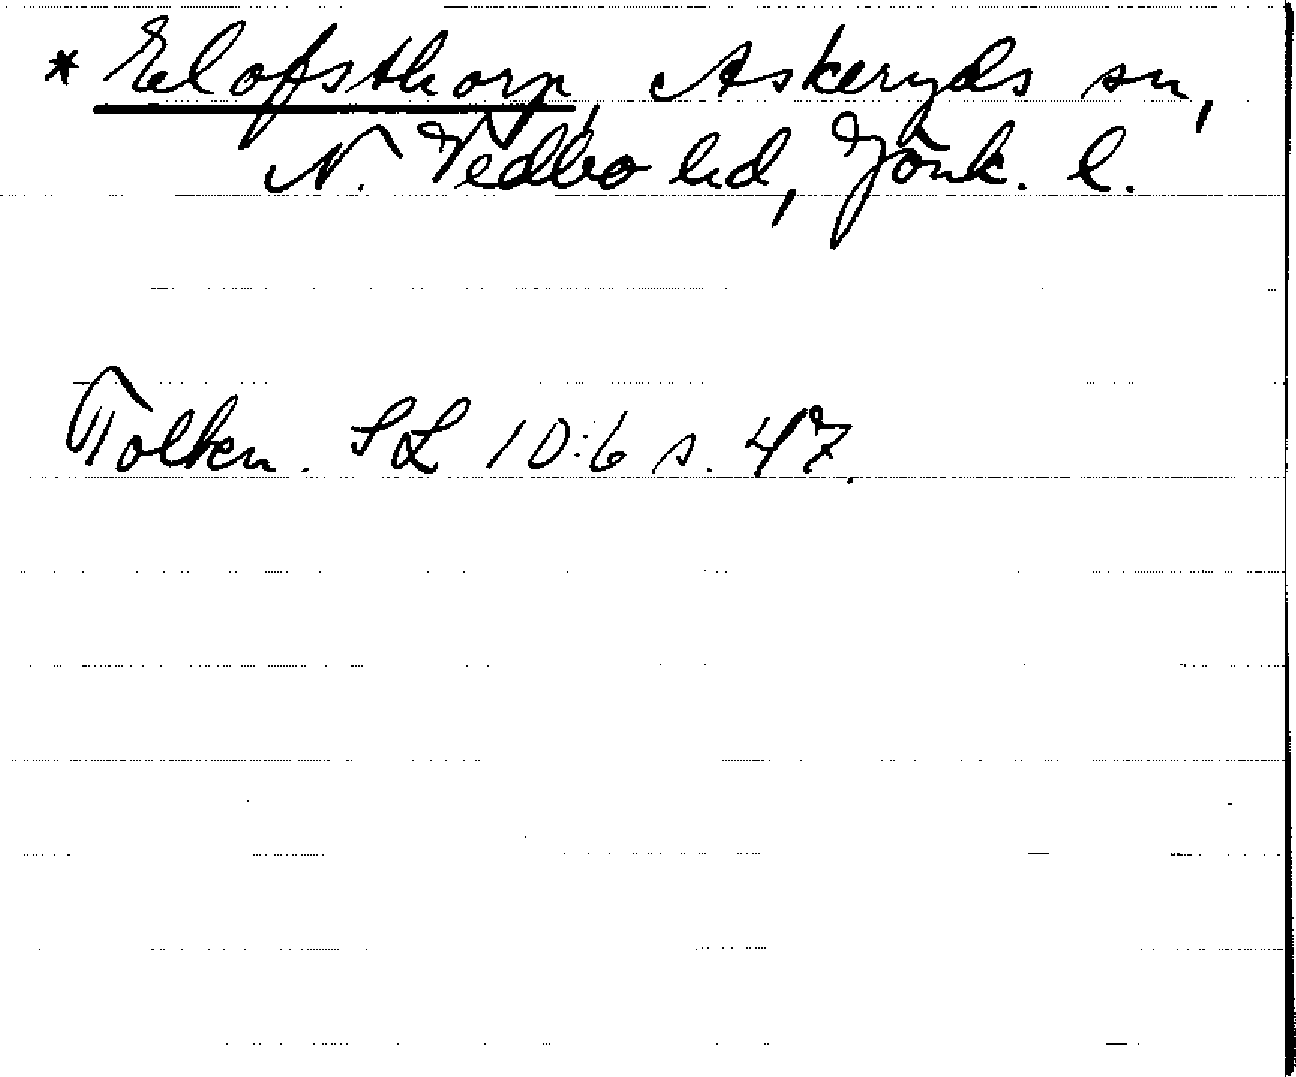 * Elofsthorp, Askeryds sn,
N. Vedbo hd, Jönk. l.
Tolkn. SL 10:6 s. 47.